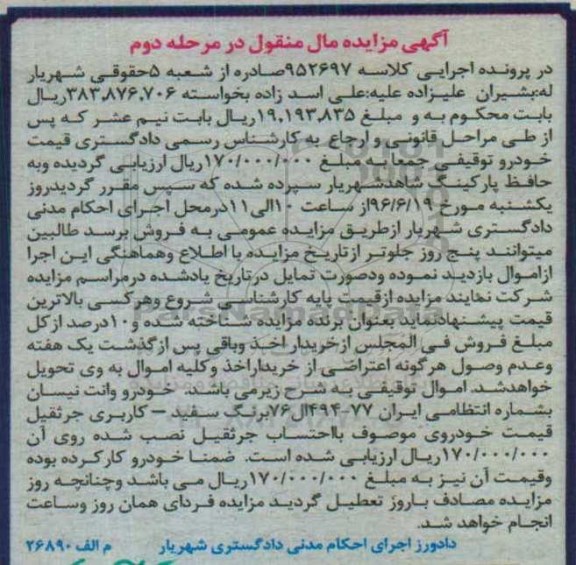 آگهی مزایده مال منقول در مرحله دوم
در پرونده اجرایی کلاسه ۹۵۲۶۹۷صادره از شعبه ۵حقوقی شهریار
له:بشیران علیزاده علیه:علی اسد زاده بخواسته ۳۸۳,۸۷۶,۷۰۶ریال
بابت محکوم به و مبلغ ۱۹,۱۹۳,۸۳۵ریال بابت نیم عشر که پس
از طی مراحل قانونی و ارجاع به کارشناس رسمی دادگستری قیمت
خودرو توقیفی جمعابه مبلغ ۱۷۰/۰۰۰/۰۰۰ریال ارزیابی گردیده وبه
حافظ پارکینگ شاهدشهریار سپرده شده که سپس مقرر گردیدروز
یکشنبه مورخ ۹۶/۶/۱۹از ساعت ۱۰الی۱۱درمحل اجرای احکام مدنی
دادگستری شهریار ازطریق مزایده عمومی به فروش برسد طالبین
میتوانند پنج روز جلوتر ازتاریخ مزایده با اطلاع وهماهنگی این اجرا
ازاموال بازدید نموده ودصورت تمایل درتاریخ یادشده درمراسم مزایده
شرکت نمایند مزایده ازقیمت پایه کارشناسی شروع وهرکسی بالاترین
قیمت پیشنهادنماید بعنوان برنده مزایده شناخته شده و۱۰درصد ازکل
مبلغ فروش فی المجلس ازخریدار اخذ وباقی پس ازگذشت یک هفته
وعدم وصول هرگونه اعتراضی از خریداراخذ وکلیه اموال به وی تحویل
خواهدشد. اموال توقیفی به شرح زیرمی باشد. خودرو وانت نیسان
بشماره انتظامی ایران ۷۷-۴۹۴ال۷۶برنگ سفید – کاربری جرثقیل
قیمت خودروی موصوف بااحتساب جرثقیل نصب شده روی آن
۱۷۰/۰۰۰/۰۰۰ریال ارزیابی شده است. ضمنا خودرو کارکرده بوده
وقیمت آن نیز به مبلغ ۱۷۰/۰۰۰/۰۰۰ریال می باشد وچنانچه روز
مزایده مصادف باروز تعطیل گردید مزایده فردای همان روز وساعت
انجام خواهد شد.
دادورز اجرای احکام مدنی دادگستری شهریار م الف ۲۶۸۹۰